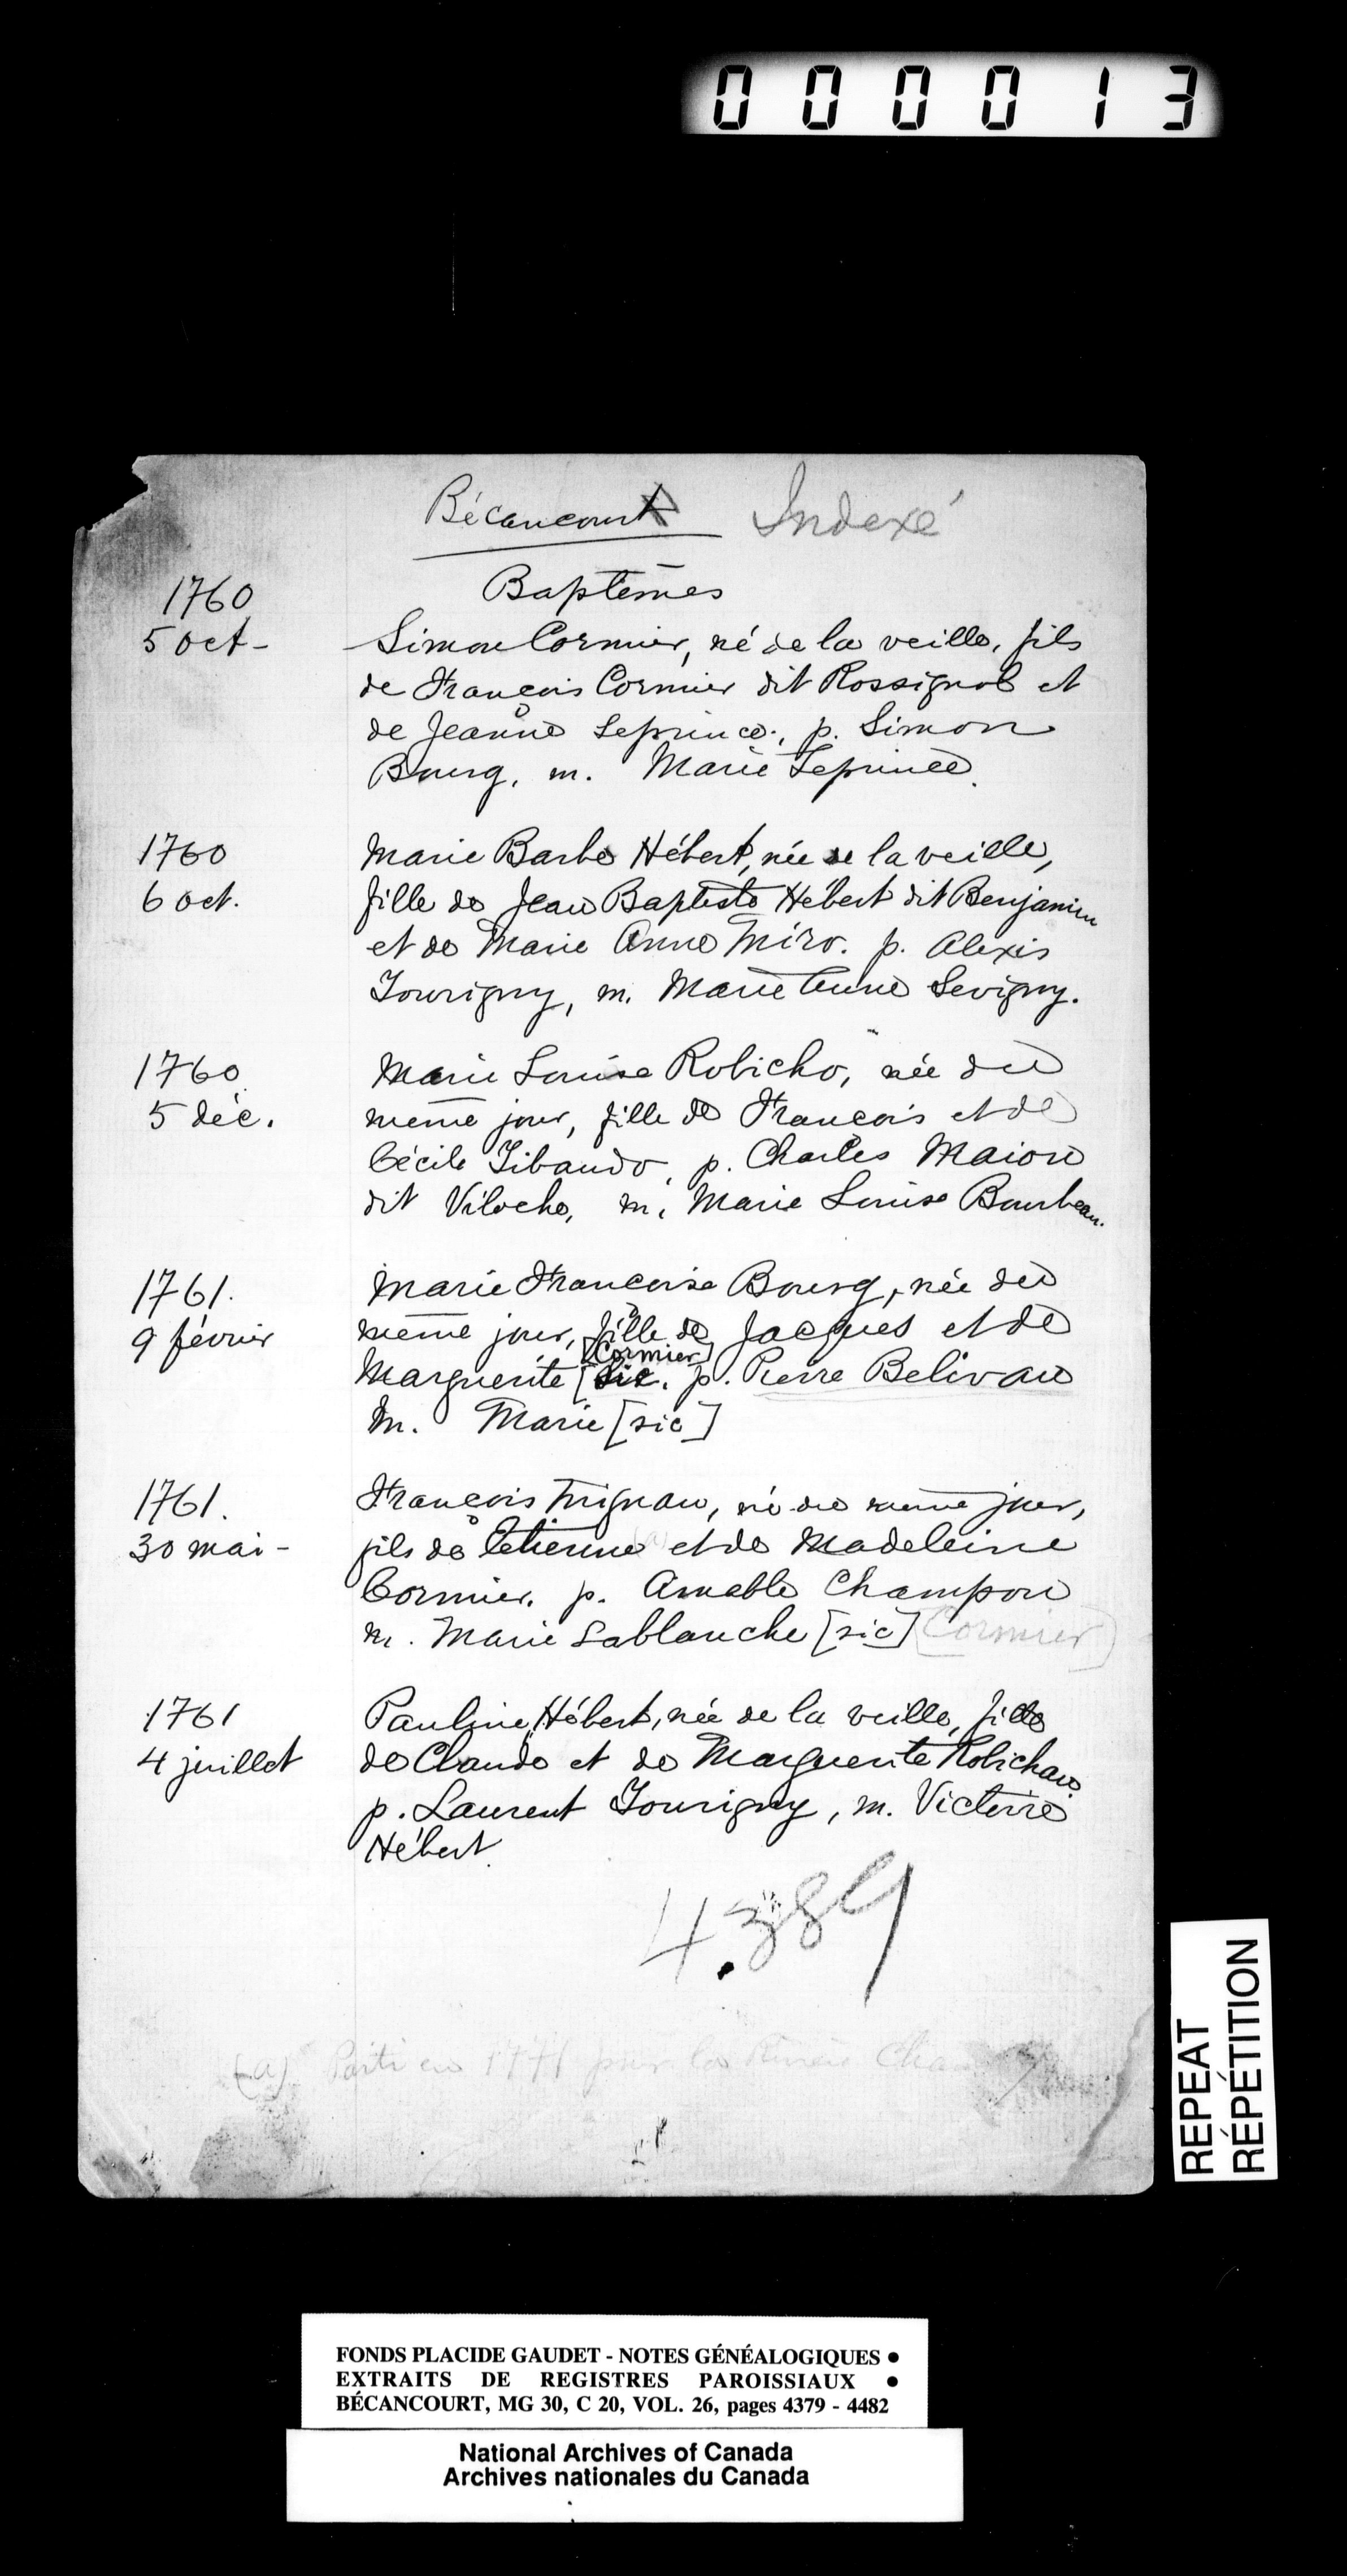 000013
Bécancourt Indexé
Baptêmes
1760
5 oct - Simon Cormier, né de la veille, fils
de François Cormier dit Rossignol et
de Jeanne Leprince, p. Simon
Bourg, m. Marie Leprince.
1760 Marie Barbe Hébert, née de la veille,
6 oct. fille de Jean Baptiste Hébert dit Benjamin
et de Marie Anne Miro. p. Alexis
Tourigny, m. Marie Anne Sevigny.
1760 Marie Louise Robicho, née du
5 déc. même jour, fille de François et de
Cécile Tibaudo, p. Charles Maion
dit Viloche, m. Marie Louise Bourbeau.
1761. Marie Françoise Bourg, née du
9 février même jour, fille de Jacques et de
[Cormier]
Marguerite [sic. p. Pierre Belivau
m. Marie [sic]
1761. François Mignau, né du même jour,
30 mai - fils de Etienne (a) et de Madeleine
Cormier. p. Amable Champou
m. Marie Lablanche [sic] [Cormier]
1761 Pauline Hébert, née de la veille, fille
4 juillet de Claude et de Marguerite Robichau
p. Laurent Tourigny, m. Victoire
Hébert.
4.389
(a) Parti en 1771 pour la Rivière
REPEAT
RÉPÉTITION
FONDS PLACIDE GAUDET - NOTES GÉNÉALOGIQUES •
EXTRAITS DE REGISTRES PAROISSIAUX •
BÉCANCOURT, MG 30, C 20, VOL. 26, pages 4379 - 4482
National Archives of Canada
Archives nationales du Canada